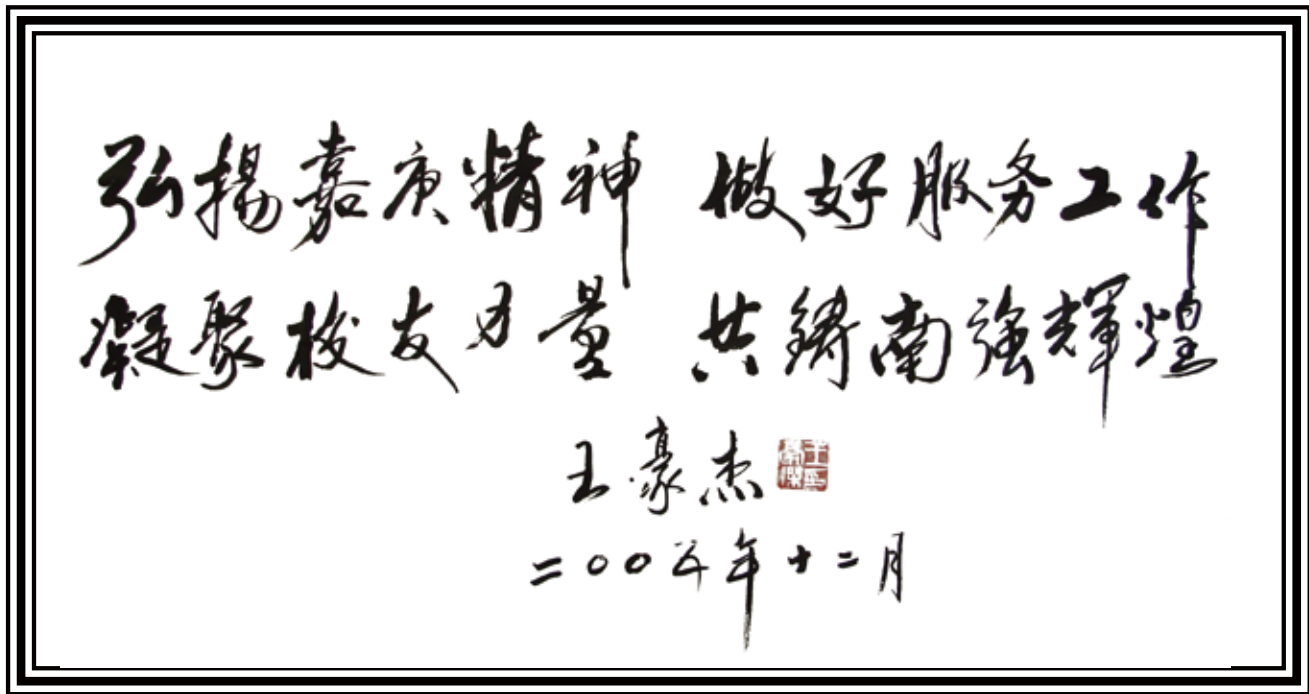 弘揚嘉庚精神 做好服务工作
凝聚校友力量 共鑄南強輝煌
王豪杰
二〇〇五年十二月